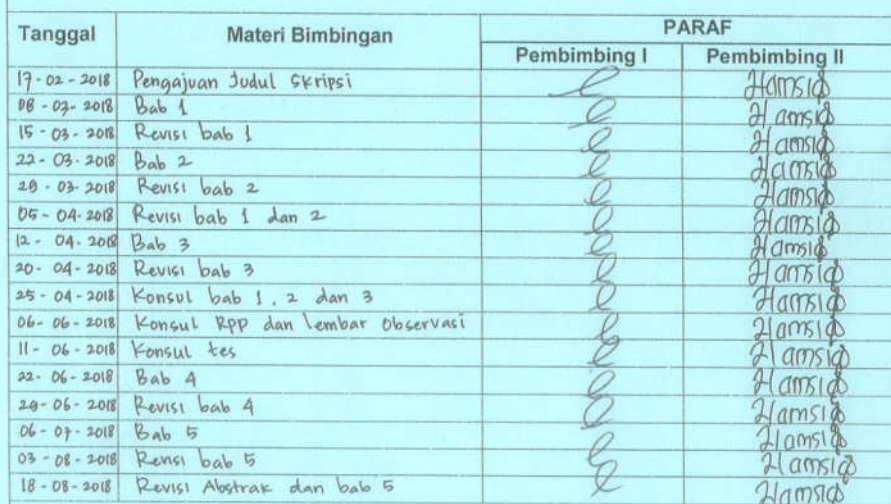 Tanggal Materi Bimbingan PARAF
Pembimbing I Pembimbing II
17-02-2018 Pengajuan Judul Skripsi Hamsiφ
08-03-2018 Bab 1 Hamsiφ
15-03-2018 Revisi bab 1 Hamsiφ
22-03-2018 Bab 2 Hamsiφ
29-03-2018 Revisi bab 2 Hamsiφ
05-04-2018 Revisi bab 1 dan 2 Hamsiφ
12-04-2018 Bab 3 Hamsiφ
20-04-2018 Revisi bab 3 Hamsiφ
25-04-2018 Konsul bab 1, 2 dan 3 Hamsiφ
06-06-2018 Konsul RPP dan lembar Observasi Hamsiφ
11-06-2018 Konsul tes Hamsiφ
22-06-2018 Bab 4 Hamsiφ
29-06-2018 Revisi bab 4 Hamsiφ
06-07-2018 Bab 5 Hamsiφ
03-08-2018 Revisi bab 5 Hamsiφ
18-08-2018 Revisi Abstrak dan bab 5 Hamsiφ